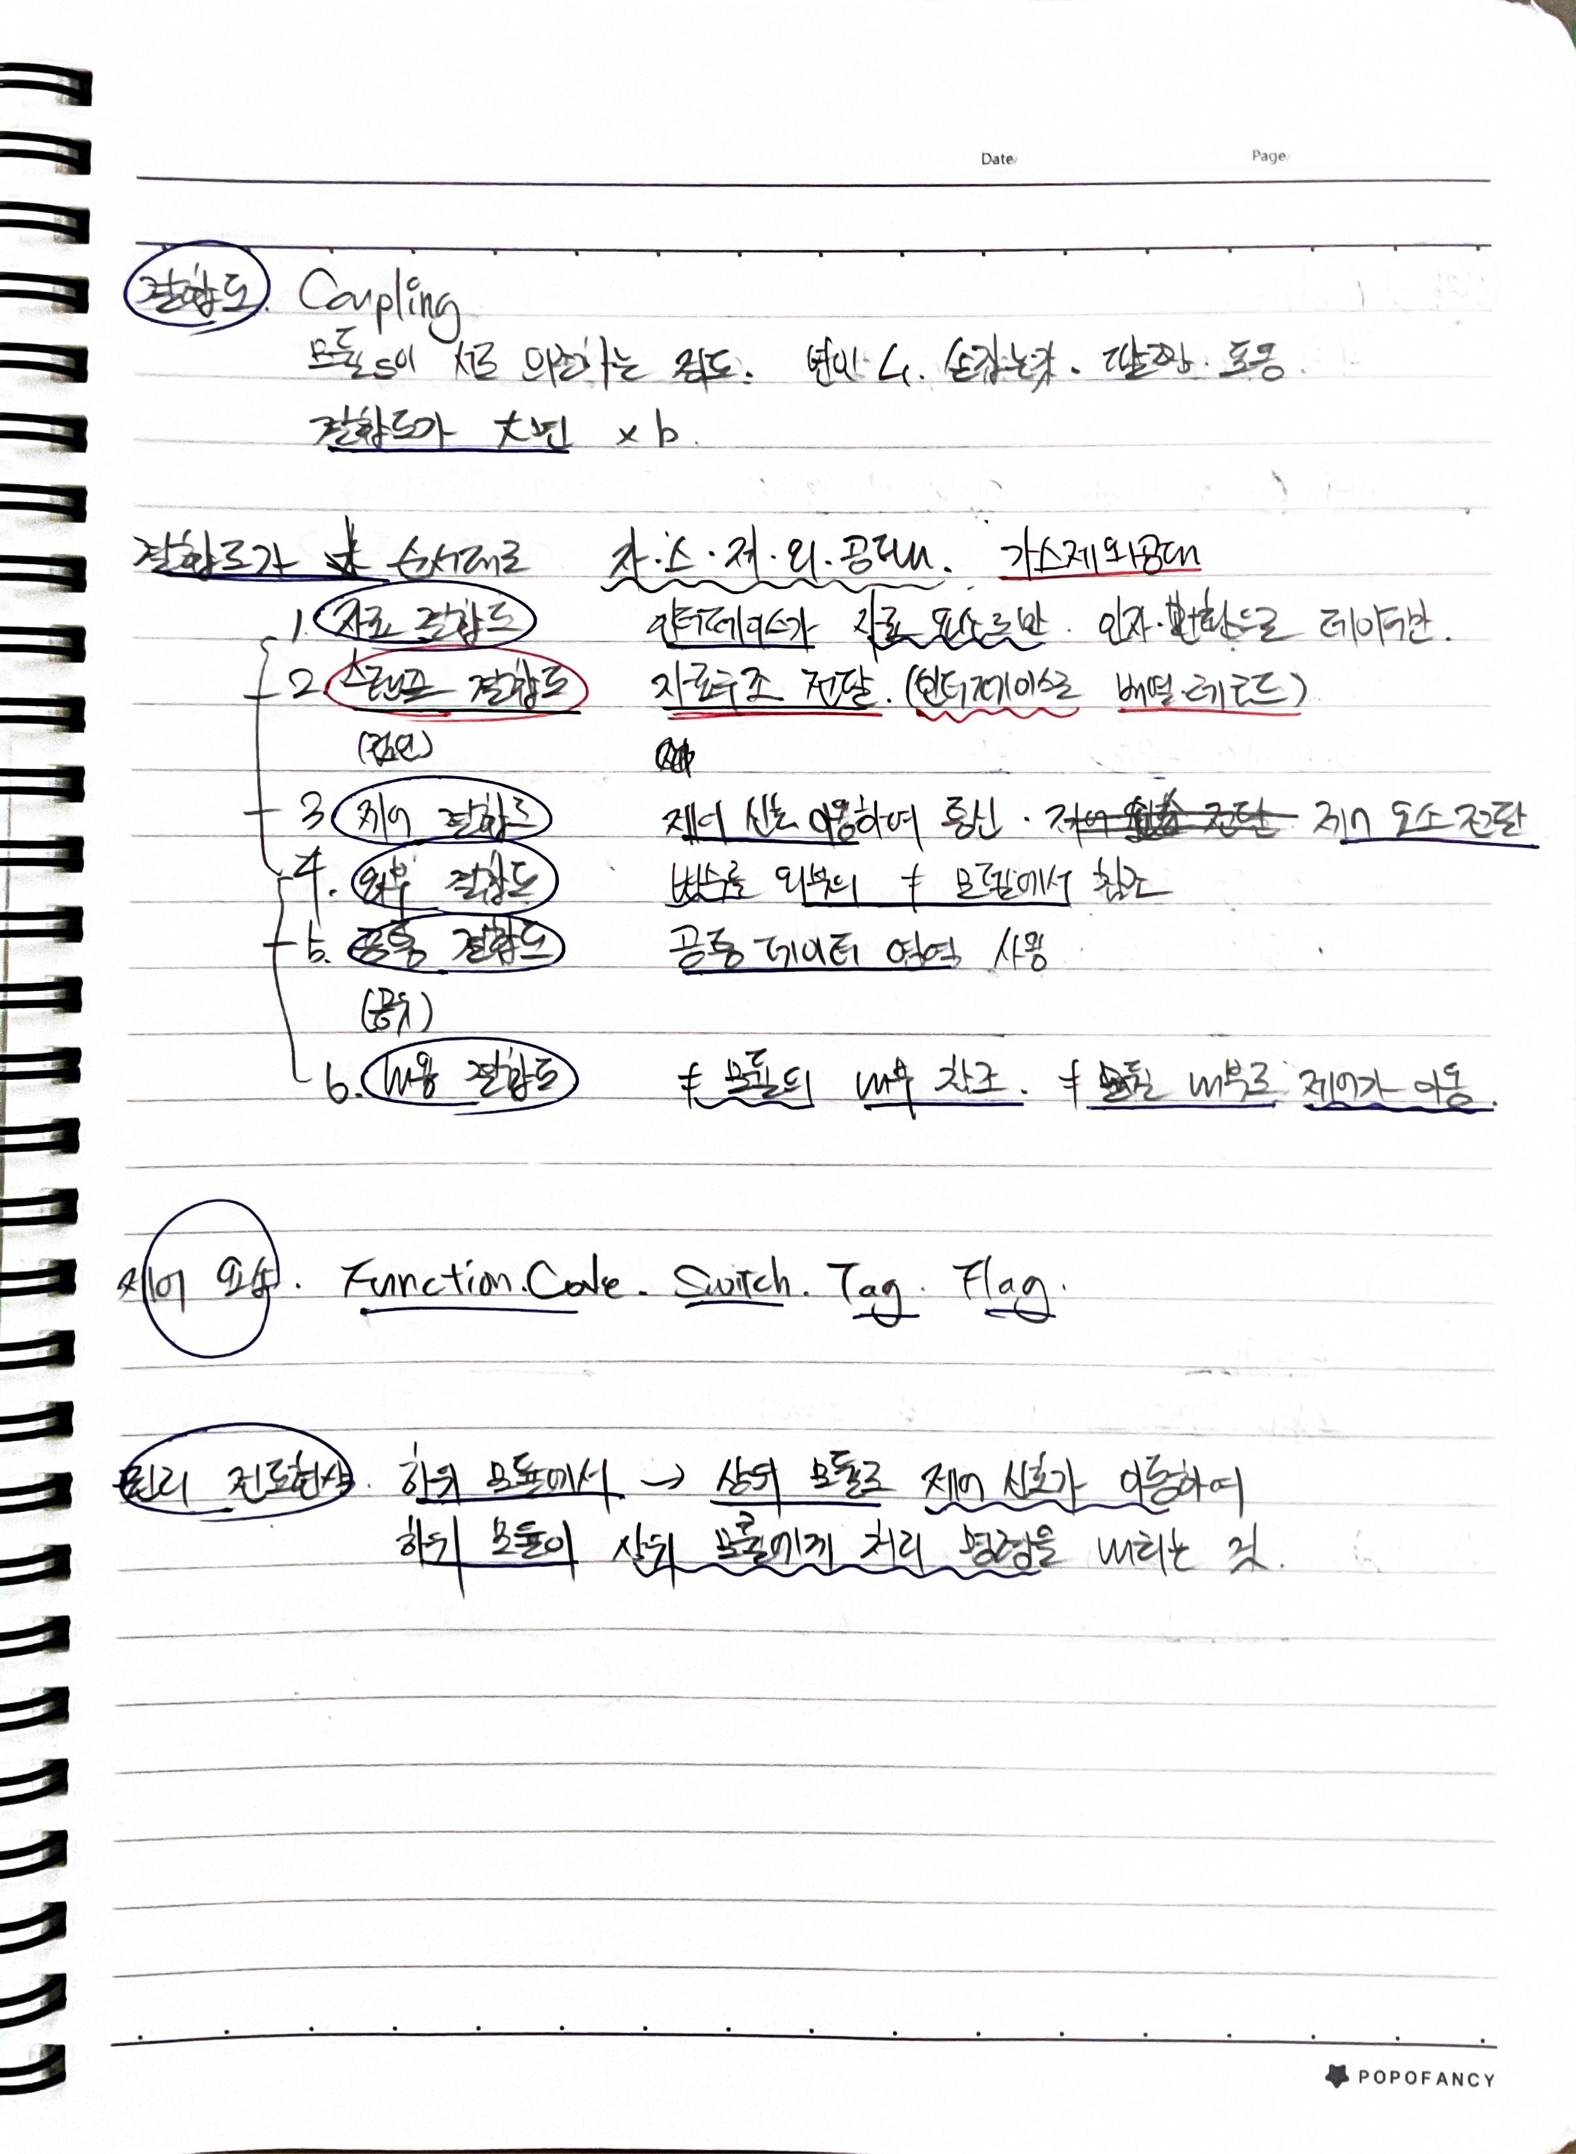 Date Page
결합도. Coupling
모듈s이 서로 의존하는 정도.
결합도가 大면 x b.
결합도가 순서대로 자.스.제.외.공.내. 가스제외공내
1. 자료 결합도 인터페이스가 자료 요소로만. 인자.반환으로 데이터만.
2. 스탬프 결합도 자료구조 전달. (인터페이스로 배열.레코드)
(검인)
3 제어 결합도 제어 신호 이용하여 통신. 제어 요소 전달
4. 외부 결합도 변수를 외부의 ≠ 모듈에서 참조
5. 공통 결합도 공통 데이터 영역 사용
(공유)
6. 내용 결합도 ≠ 모듈의 내부 참조. ≠ 모듈 내부로 제어가 이동.
제어 요소. Function.Code. Switch. Tag. Flag.
권리 전도현상. 하위 모듈에서 → 상위 모듈로 제어 신호가 이동하여
하위 모듈이 상위 모듈에게 처리 명령을 내리는 것.
POPOFANCY